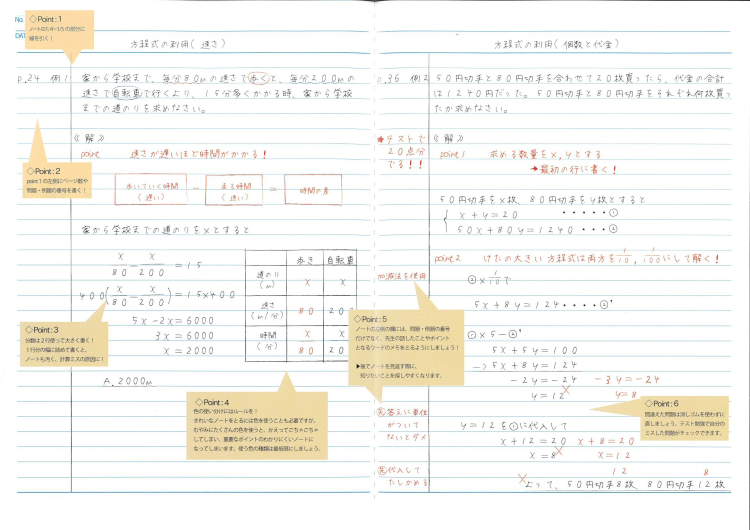 No.
◇Point : 1
ノートの1/4~1/5の部分に
線を引く!
方程式の利用(速さ)
p.24 例1
家から学校まで、毎分80mの速さで歩くと、毎分200mの
速さで自転車で行くより、15分多くかかる時、家から学校
までの道のりを求めなさい。
◇Point : 2
point 1の左側にページ数や
問題・例題の番号を書く!
《解》
point 速さが遅いほど時間がかかる!
歩いていく時間
(遅い)
−
走る時間
(速い)
=
時間の差
家から学校までの道のりをxとすると
x/80 − x/200 = 15
400(x/80 − x/200) = 15×400
5x − 2x = 6000
3x = 6000
x = 2000
A. 2000m
歩き 自転車
道のり(m) x x
速さ(m/分) 80 200
時間(分) x/80 x/200
◇Point : 3
分数は2行使って大きく書く!
1行分の幅に詰めて書くと、
ノートも汚く、計算ミスの原因に!
◇Point : 4
色の使い分けにはルールを!
きれいなノートをとるには色を使うことも必要ですが、
むやみにたくさんの色を使うと、かえってごちゃごちゃ
してしまい、重要なポイントのわかりにくいノートに
なってしまいます。使う色の種類は最低限にしましょう。
方程式の利用(個数と代金)
p.36 例2
50円切手と80円切手を合わせて20枚買ったら、代金の合計
は1240円だった。50円切手と80円切手をそれぞれ何枚買っ
たか求めなさい。
★テストで
20点分
でる!!
《解》
point 1 求める数量をx,yとする
→最初の行に書く!
50円切手をx枚、80円切手をy枚とすると
x + y = 20 ・・・・・①
50x + 80y = 1240 ・・・②
point 2 けたの大きい方程式は両方を1/10, 1/100にして解く!
加減法を使用
②×1/10で
5x + 8y = 124・・・・②'
①×5−②'
5x + 5y = 100
−)5x + 8y = 124
−2y = −24 −3y = −24
y = 12 y = 8
◇Point : 5
ノートの左側の欄には、問題・例題の番号
だけでなく、先生の話したことやポイント
となるワードのメモをとるようにしましょう!
▶後でノートを見返す際に、
知りたいことを探しやすくなります。
◇Point : 6
間違えた問題は消しゴムを使わずに
直しましょう。テスト勉強で自分の
ミスした問題がチェックできます。
答えに単位
がついて
ないとダメ
y = 12を①に代入して
x + 12 = 20 x + 8 = 20
x = 8 x = 12
代入して
たしかめる!
12 8
よって、50円切手8枚、80円切手12枚